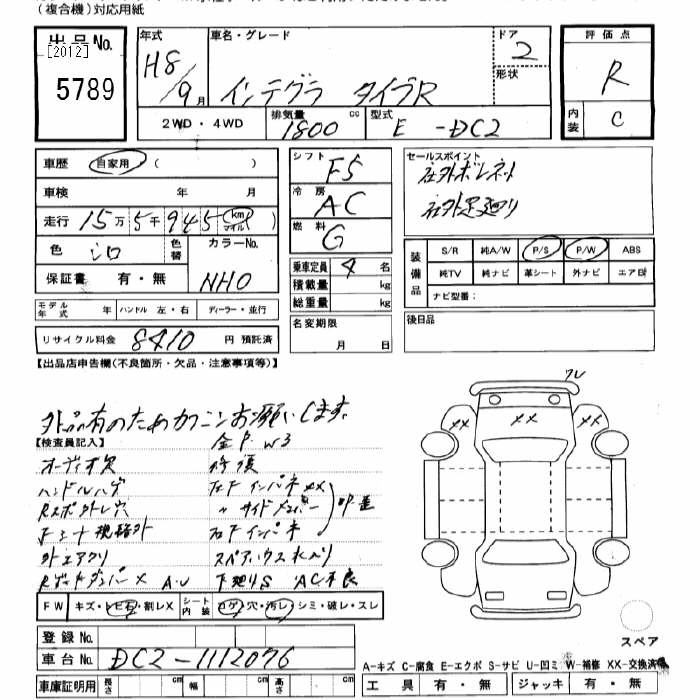 (複合機)対応用紙
出品No.
[2012]
5789
年式
H8/9月
車名・グレード
インテグラ タイプR
ドア
2
形状
評価点
R
内装
C
2WD・4WD
排気量
1800 cc
型式
E -DC2
車歴 自家用 ( )
車検 年 月
走行 15万5千945 (km マイル)
色 シロ
色替
カラーNo.
NHO
保証書 有・無
モデル年式 年 ハンドル 左・右 ディーラー・並行
リサイクル料金 8410 円 預託済
シフト
F5
冷房
AC
燃料
G
乗車定員 4 名
積載量 kg
総重量 kg
名変期限
月 日
セールスポイント
社外ボンネット
社外足廻り
装備品
S/R 純A/W P/S P/W ABS
純TV 純ナビ 革シート 外ナビ エアB
ナビ型番:
後日品
【出品店申告欄(不良箇所・欠品・注意事項等)】
外品有のためカクニンお願いします。
【検査員記入】
金P W3
オーディオ欠
修復
ハンドルハゲ
左Fインパネ XX
外エアクリ
AC不良
FW キズ・トビ石・割レX
シート内装 コゲ・穴・汚レ・シミ・破レ・スレ
登録No.
車台No. DC2-1112076
車庫証明用 長さ cm 幅 cm 高さ cm
XX XX
スペア
A-キズ C-腐食 E-エクボ S-サビ U-凹ミ W-補修 XX-交換済
工具 有・無 ジャッキ 有・無